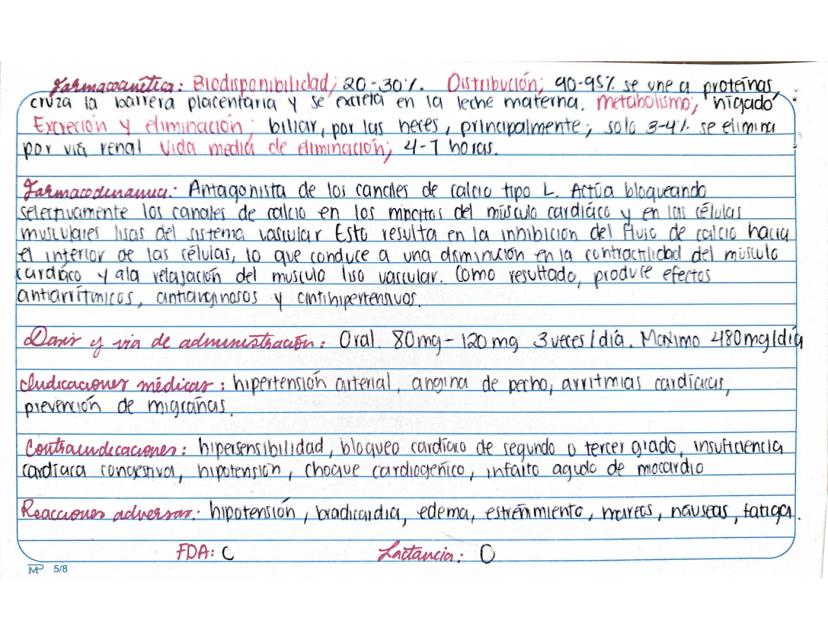 Farmacocinética: Biodisponibilidad; 20-30%. Distribución; 90-95% se une a proteínas,
cruza la barrera placentaria y se excreta en la leche materna. metabolismo; hígado
Excreción y eliminación; biliar, por las heces, principalmente; solo 3-4% se elimina
por vía renal Vida media de eliminación; 4-7 horas.
Farmacodinamia: Antagonista de los canales de calcio tipo L. Actúa bloqueando
selectivamente los canales de calcio en los miocitos del músculo cardiáco y en las células
musculares lisas del sistema vascular Esto resulta en la inhibición del flujo de calcio hacia
el interior de las células, lo que conduce a una disminución en la contractilidad del músculo
cardiáco y a la relajación del musculo liso vascular. Como resultado, produce efectos
antiarrítmicos, antianginosos y antihipertensivos.
Dosis y vía de administración: Oral. 80mg-120mg 3 veces/día. Maximo 480mg/día
Indicaciones médicas: hipertensión arterial, angina de pecho, arritmias cardíacas,
prevención de migrañas.
Contraindicaciones: hipersensibilidad, bloqueo cardíaco de segundo o tercer grado, insuficiencia
cardíaca congestiva, hipotensión, choque cardiogénico, infarto agudo de miocardio
Reacciones adversas: hipotensión, bradicardia, edema, estreñimiento, mareos, náuseas, fatiga.
FDA: C Lactancia: 0
MP 5/8